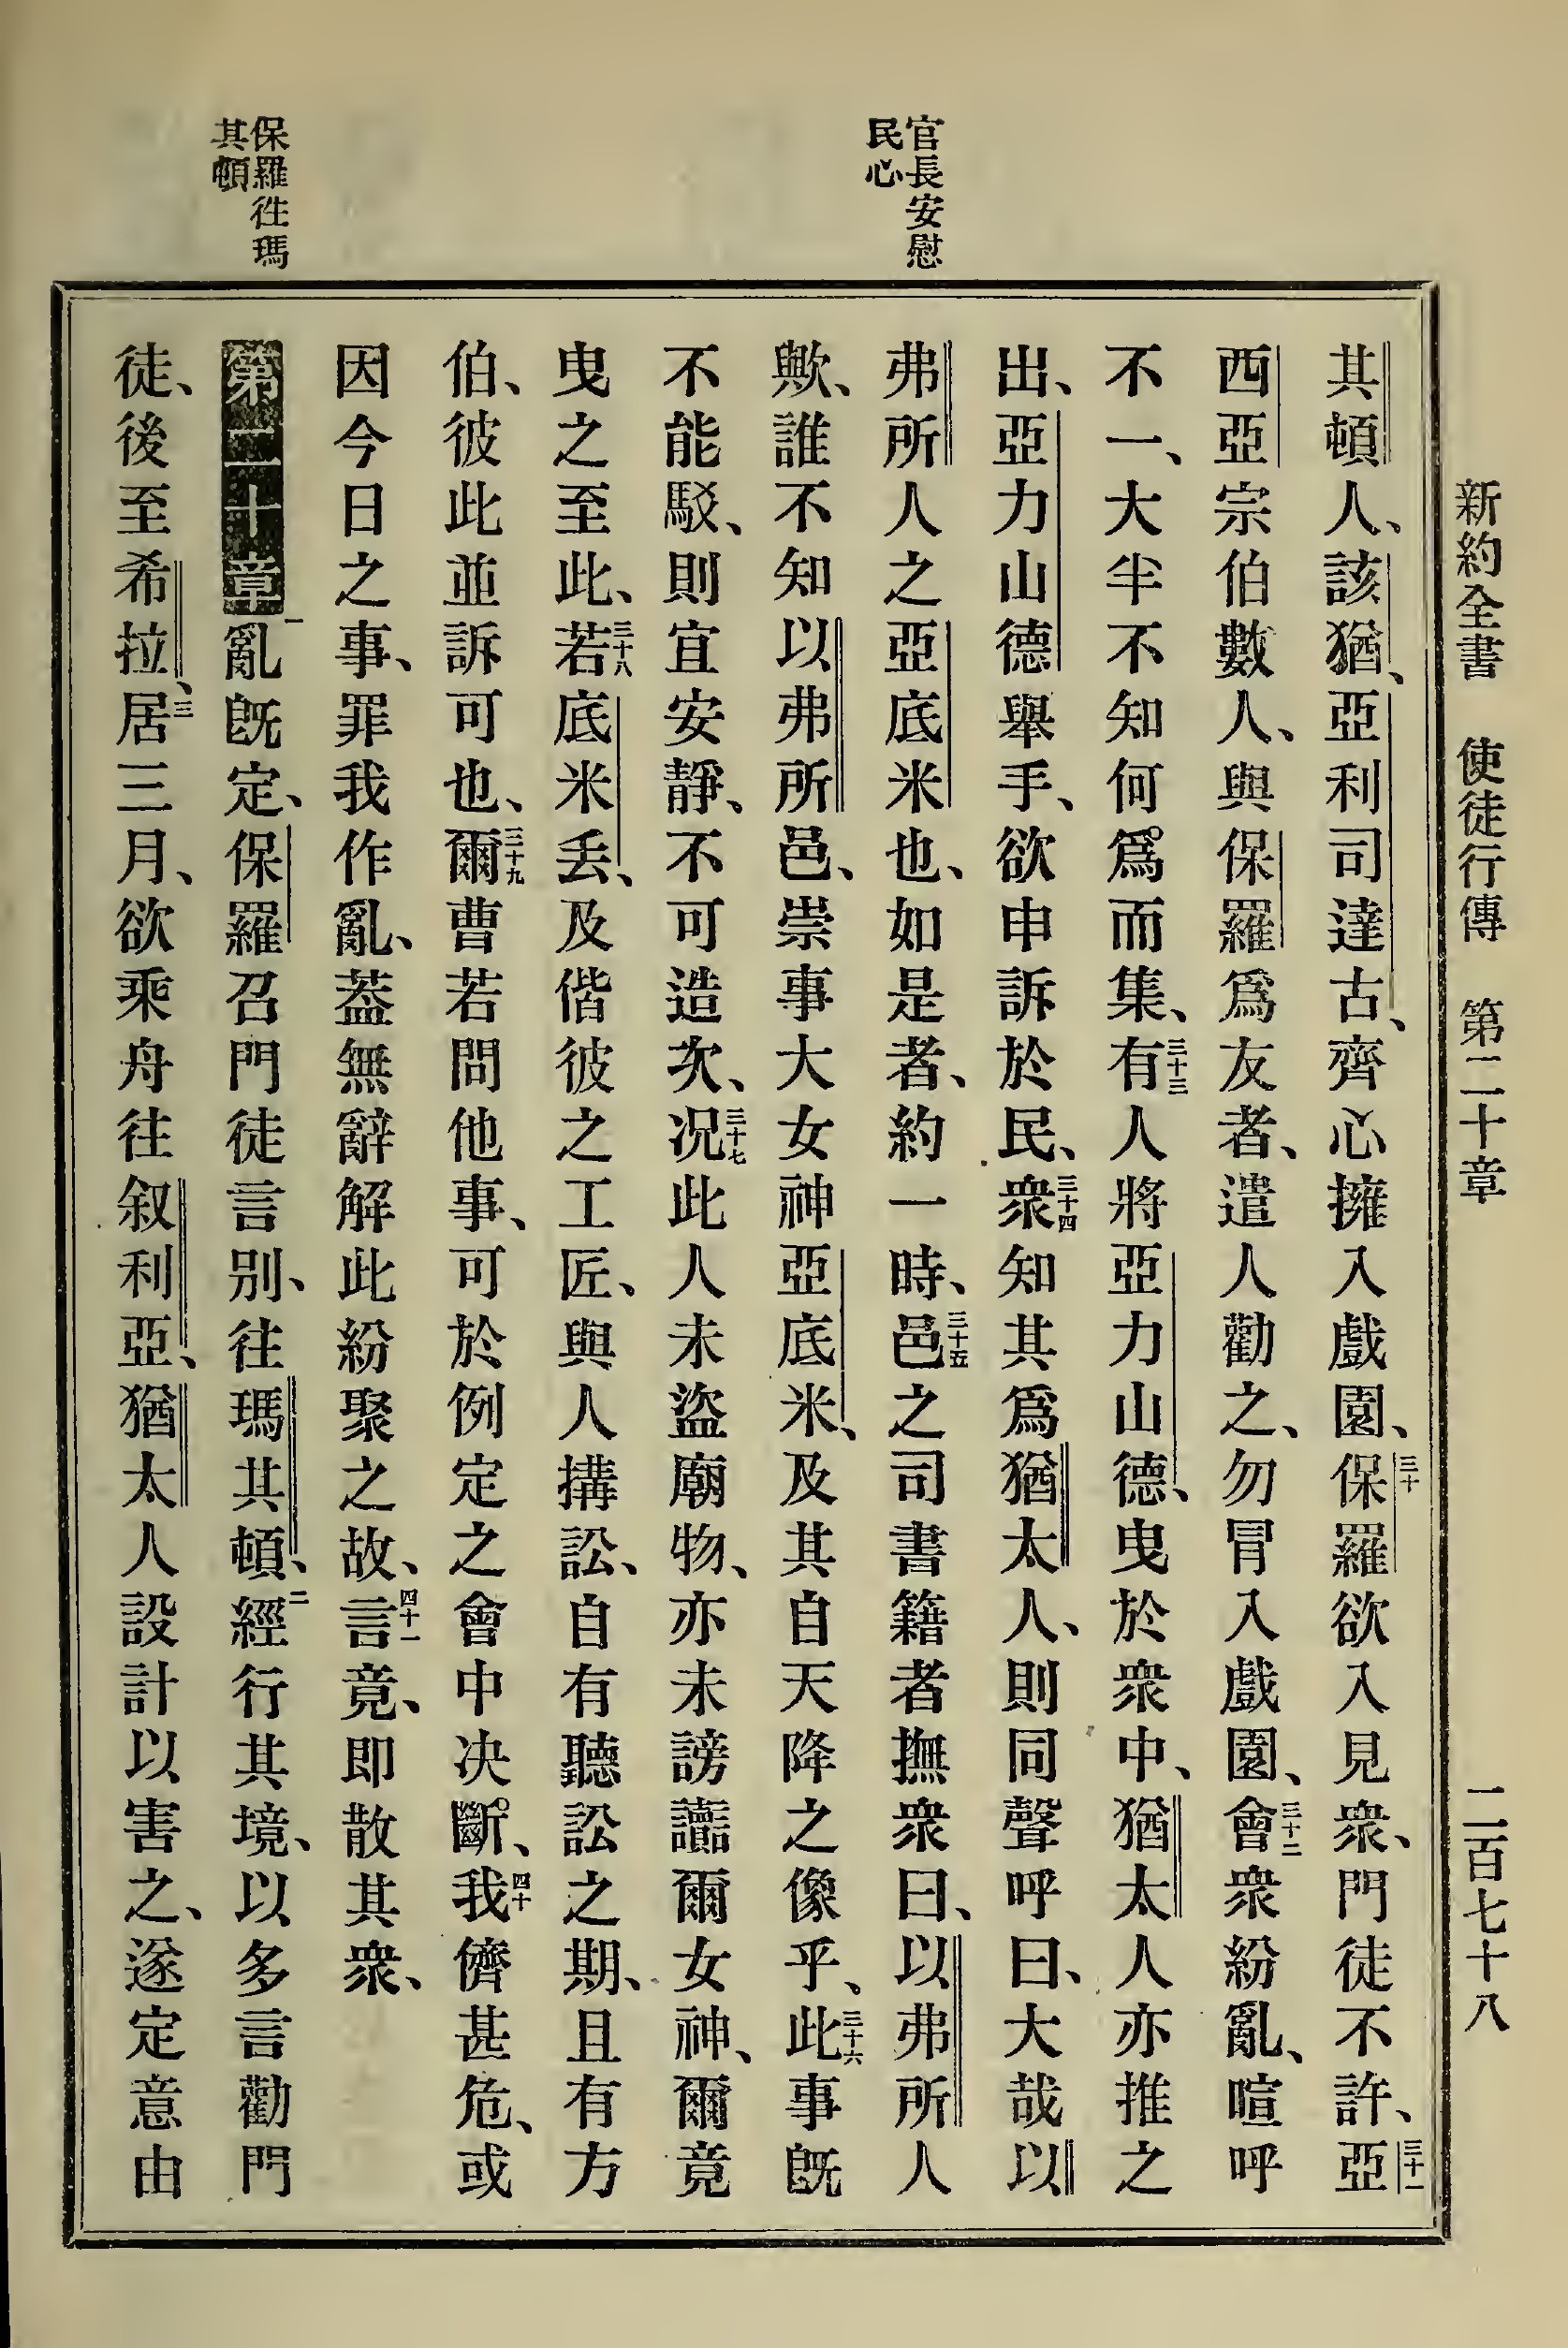 新約全書 使徒行傳 第二十章 二百七十八
官長安慰
民心
保羅徃瑪
其頓
其頓人、該猶、亞利司達古、齊心擁入戲園、三十保羅欲入見衆、門徒不許、三十一亞
西亞宗伯數人、與保羅爲友者、遣人勸之、勿冒入戲園、三十二會衆紛亂、喧呼
不一、大半不知何爲而集、三十三有人將亞力山德、曳於衆中、猶太人亦推之
出、亞力山德舉手、欲申訴於民、三十四衆知其爲猶太人、則同聲呼曰、大哉以
弗所人之亞底米也、如是者、約一時、三十五邑之司書籍者撫衆曰、以弗所人
歟、誰不知以弗所邑、崇事大女神亞底米、及其自天降之像乎、三十六此事旣
不能駁、則宜安靜、不可造次、三十七况此人未盜廟物、亦未謗讟爾女神、爾竟
曳之至此、三十八若底米丟、及偕彼之工匠、與人搆訟、自有聽訟之期、且有方
伯、彼此並訴可也、三十九爾曹若問他事、可於例定之會中决斷、四十我儕甚危、或
因今日之事、罪我作亂、葢無辭解此紛聚之故、四十一言竟、即散其衆、
第二十章一亂旣定、保羅召門徒言别、往瑪其頓、二經行其境、以多言勸門
徒、後至希拉、三居三月、欲乘舟往叙利亞、猶太人設計以害之、遂定意由